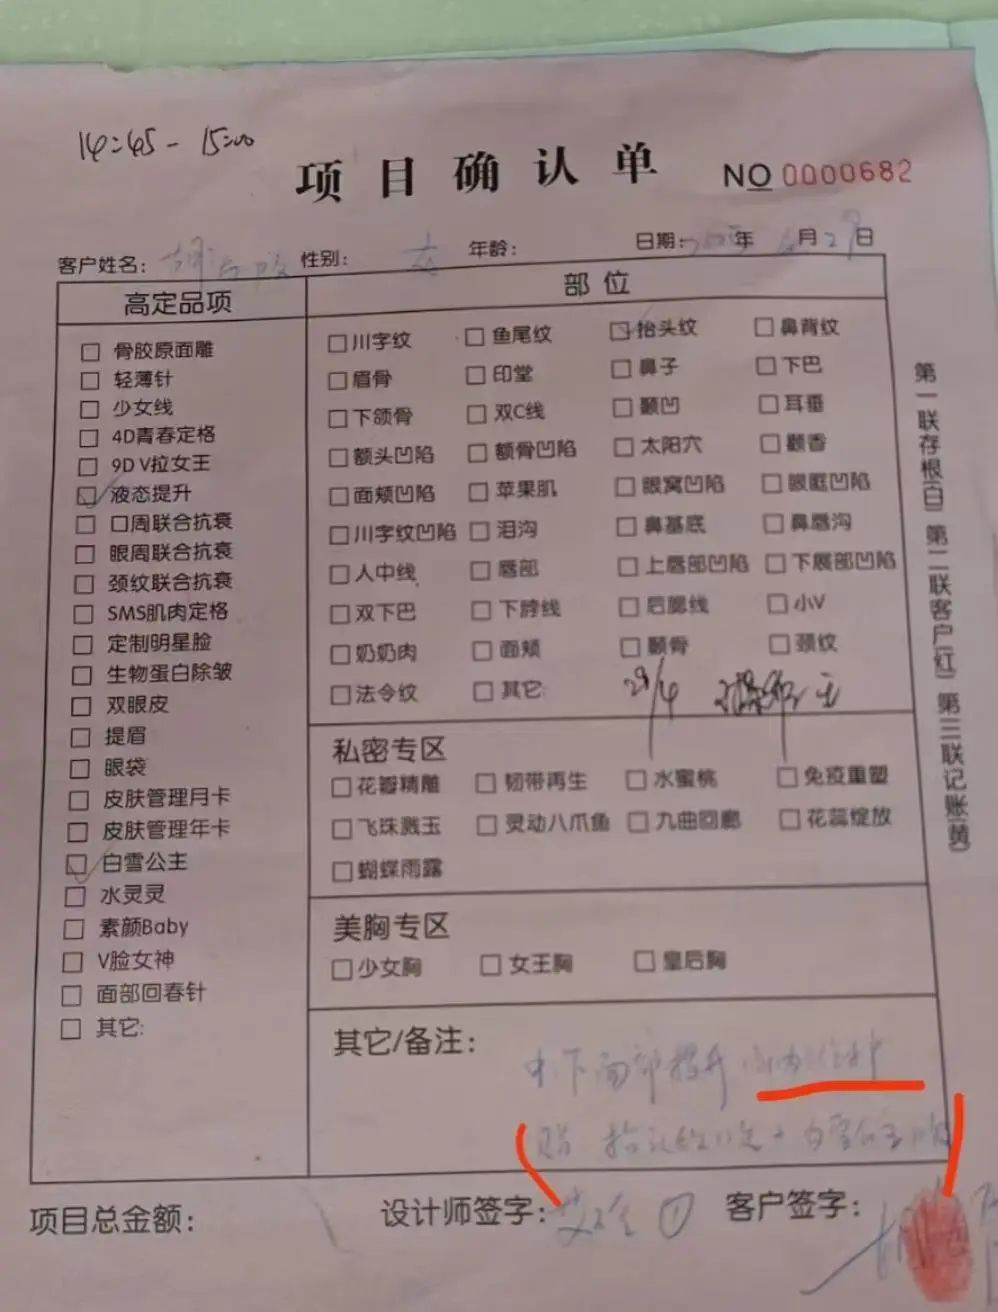 14:45 - 15:00
项目确认单 NO 0000682
客户姓名: 性别: 年龄: 日期: 年 月 29 日
高定品项 部位
□ 骨胶原面雕 □ 川字纹 □ 鱼尾纹 □ 抬头纹 □ 鼻背纹
□ 轻薄针 □ 眉骨 □ 印堂 □ 鼻子 □ 下巴
□ 少女线 □ 下颌骨 □ 双C线 □ 颞凹 □ 耳垂
□ 4D青春定格 □ 额头凹陷 □ 额骨凹陷 □ 太阳穴 □ 颧香
□ 9D V拉女王 □ 面颊凹陷 □ 苹果肌 □ 眼窝凹陷 □ 眼眶凹陷
□ 液态提升 □ 川字纹凹陷 □ 泪沟 □ 鼻基底 □ 鼻唇沟
□ 口周联合抗衰 □ 人中线 □ 唇部 □ 上唇部凹陷 □ 下唇部凹陷
□ 眼周联合抗衰 □ 双下巴 □ 下脖线 □ 后腮线 □ 小V
□ 颈纹联合抗衰 □ 奶奶肉 □ 面颊 □ 颧骨 □ 颈纹
□ SMS肌肉定格 □ 法令纹 □ 其它: 29/4
□ 定制明星脸
□ 生物蛋白除皱
□ 双眼皮
□ 提眉
□ 眼袋
□ 皮肤管理月卡
□ 皮肤管理年卡
□ 白雪公主
□ 水灵灵
□ 素颜Baby
□ V脸女神
□ 面部回春针
□ 其它:
私密专区
□ 花瓣精雕 □ 韧带再生 □ 水蜜桃 □ 免疫重塑
□ 飞珠溅玉 □ 灵动八爪鱼 □ 九曲回廊 □ 花蕊绽放
□ 蝴蝶雨露
美胸专区
□ 少女胸 □ 女王胸 □ 皇后胸
其它/备注:
中下面部提升
抬头纹 白雪公主
项目总金额: 设计师签字: 客户签字:
第一联存根(白) 第二联客户(红) 第三联记账(黄)